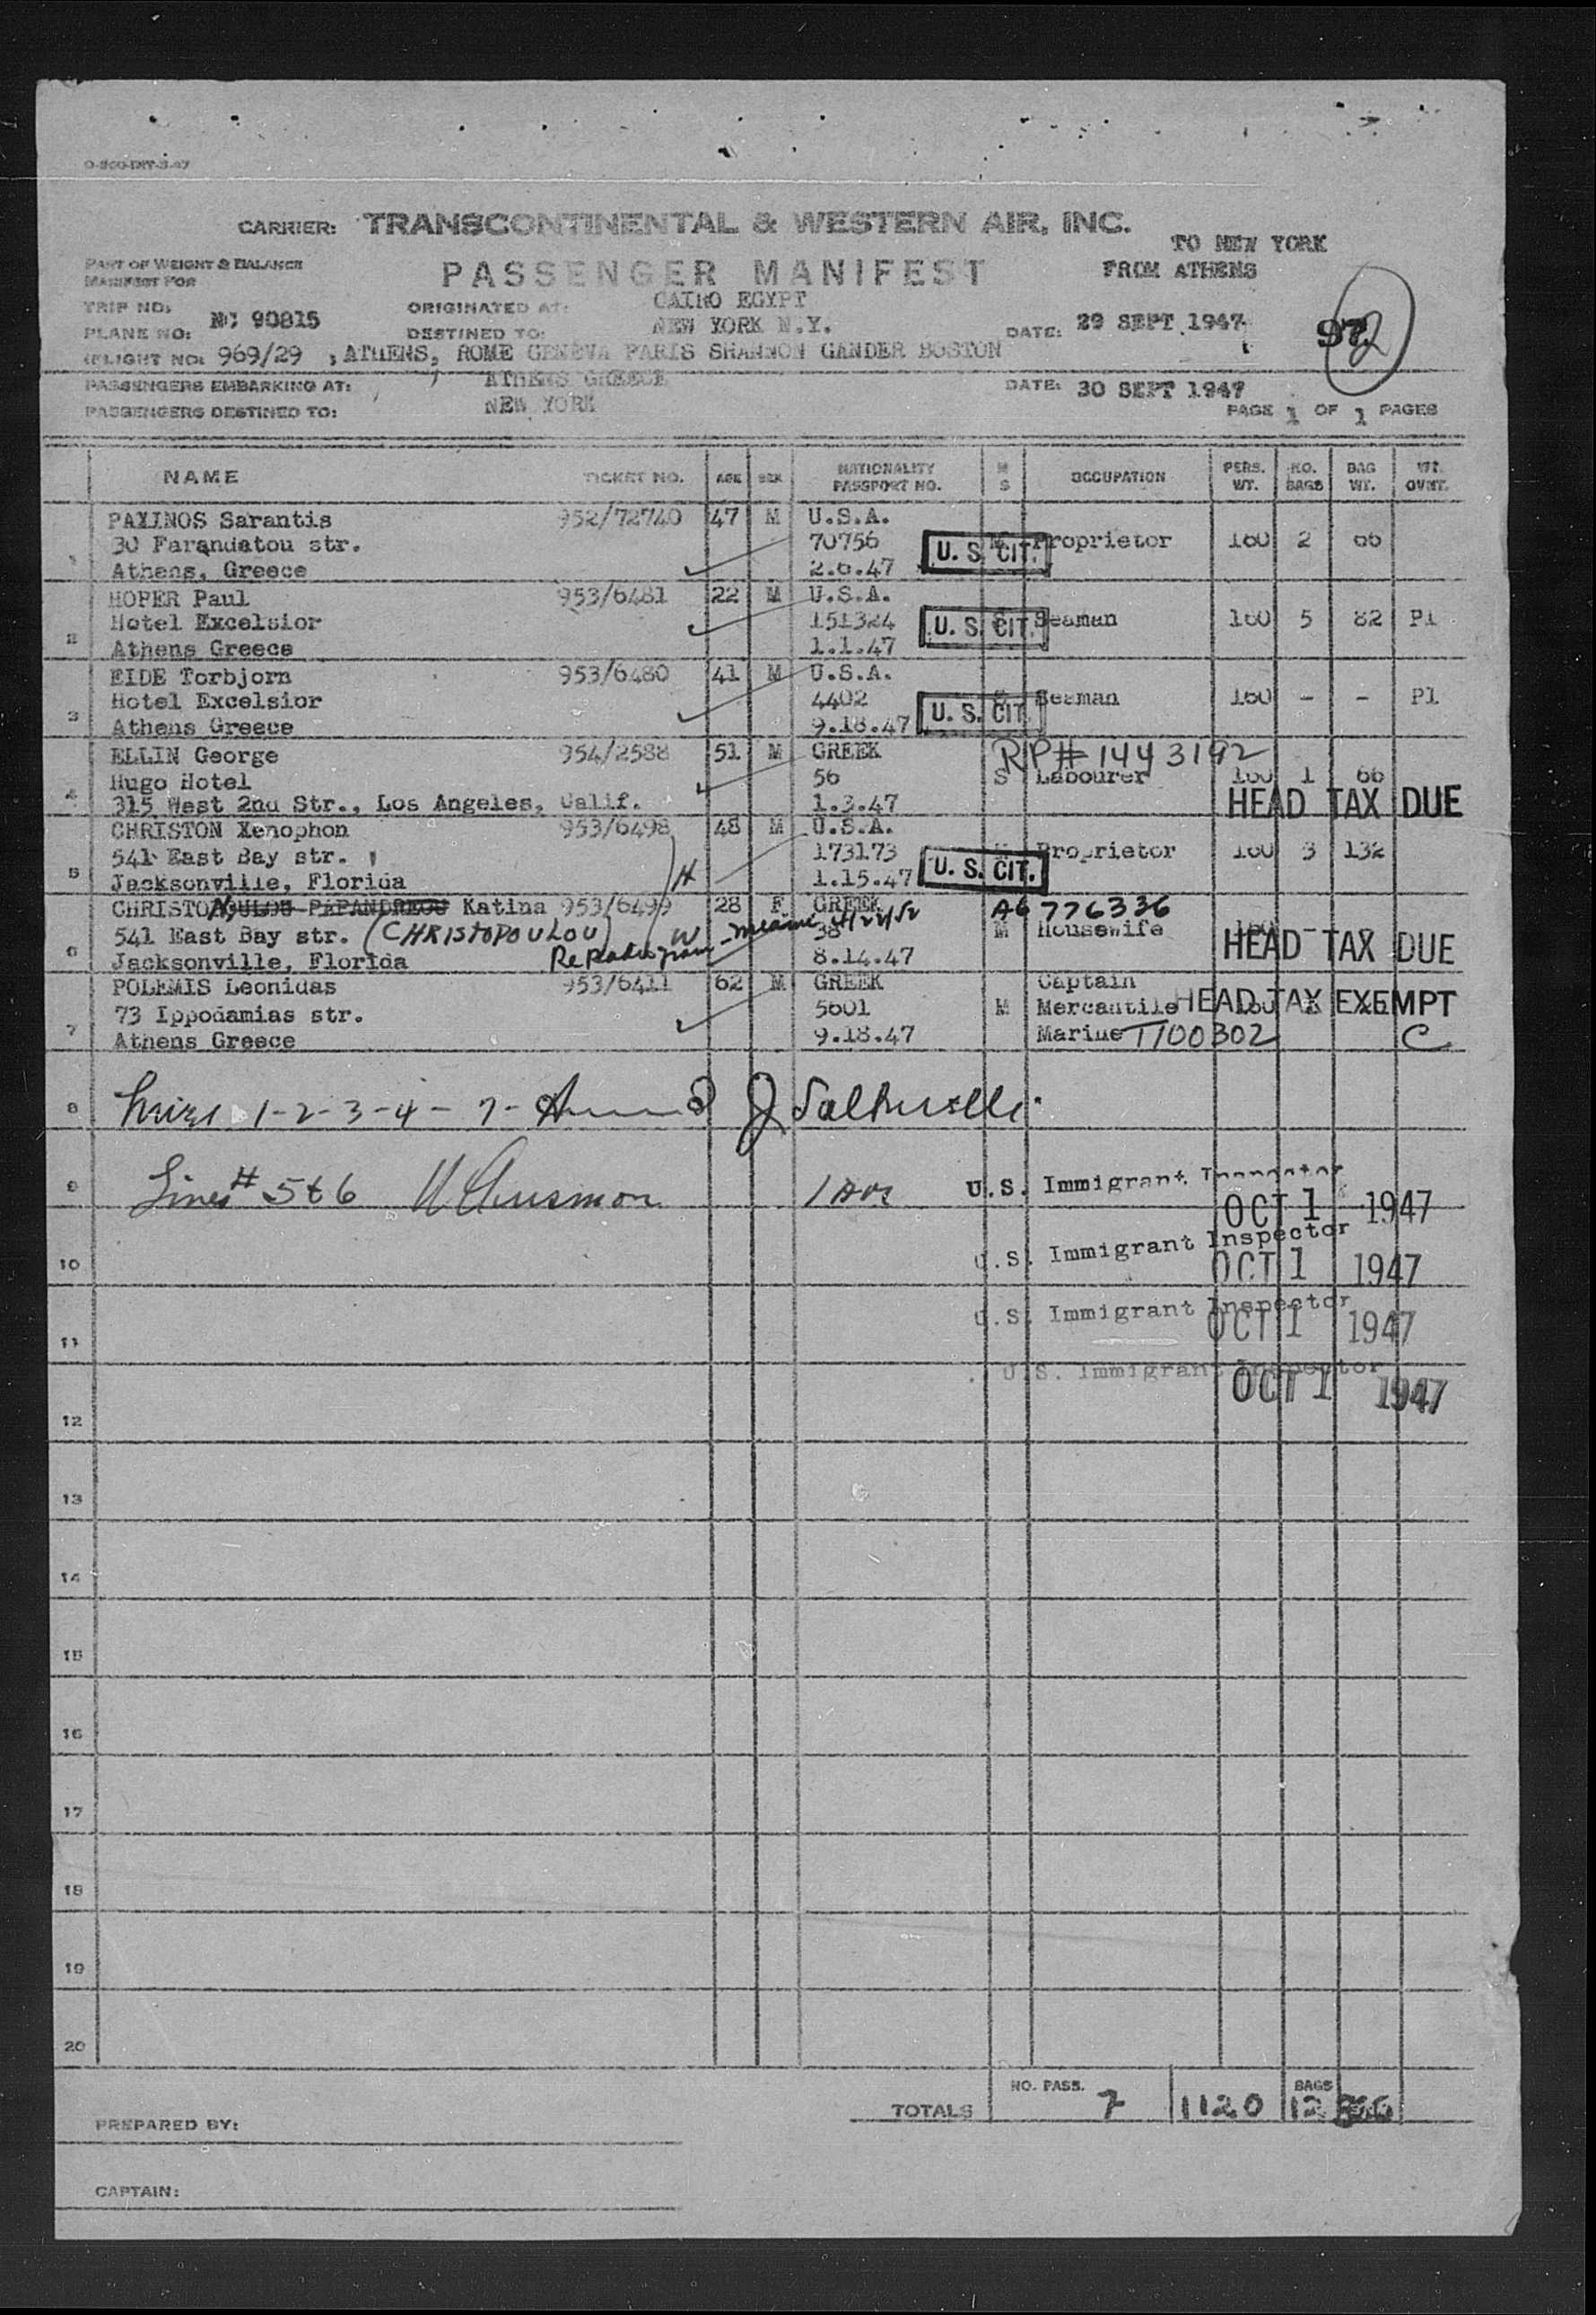 CARRIER: TRANSCONTINENTAL & WESTERN AIR, INC.
TO NEW YORK
PART OF WEIGHT & BALANCE
MANIFEST FOR
PASSENGER MANIFEST
FROM ATHENS
TRIP NO:
ORIGINATED AT: CAIRO EGYPT
PLANE NO: NC 90815
DESTINED TO: NEW YORK N.Y.
DATE: 29 SEPT 1947
FLIGHT NO: 969/29 , ATHENS, ROME GENEVA PARIS SHANNON GANDER BOSTON
PASSENGERS EMBARKING AT: ATHENS GREECE
DATE: 30 SEPT 1947
PASSENGERS DESTINED TO: NEW YORK
PAGE 1 OF 1 PAGES
NAME TICKET NO. AGE SEX NATIONALITY PASSPORT NO. M S OCCUPATION PERS. WT. NO. BAGS BAG WT. WT. OVHT.
PAXINOS Sarantis 952/72740 47 M U.S.A.
1 30 Farandatou str. 70756 U. S. CIT. Proprietor 160 2 66
Athens, Greece 2.6.47
HOPER Paul 953/6481 22 M U.S.A.
2 Hotel Excelsior 151324 U. S. CIT. Seaman 160 5 82 P1
Athens Greece 1.1.47
EIDE Torbjorn 953/6480 41 M U.S.A.
3 Hotel Excelsior 4402 U. S. CIT. Seaman 160 - - P1
Athens Greece 9.18.47
ELLIN George 954/2588 51 M GREEK R/P# 1443192
4 Hugo Hotel 56 S Labourer 160 1 66
315 West 2nd Str., Los Angeles, Calif. 1.3.47 HEAD TAX DUE
CHRISTON Xenophon 953/6498 48 M U.S.A.
5 541 East Bay str. 173173 Proprietor 160 3 132
Jacksonville, Florida H 1.15.47 U. S. CIT.
CHRISTON Katina 953/6499 28 F GREEK A6 776336
6 541 East Bay str. (CHRISTOPOULOU) W 38 M Housewife
Jacksonville, Florida 8.14.47 HEAD TAX DUE
POLEMIS Leonidas 953/6411 62 M GREEK Captain
7 73 Ippodamias str. 5601 M Mercantile HEAD TAX EXEMPT
Athens Greece 9.18.47 Marine T100302 C
8 1-2-3-4-7-
9 Lines # 5 & 6 U.S. Immigrant Inspector
OCT 1 1947
10 U.S. Immigrant Inspector
OCT 1 1947
11 U.S. Immigrant Inspector
OCT 1 1947
U.S. Immigrant Inspector
12 OCT 1 1947
13
14
15
16
17
18
19
20
TOTALS NO. PASS. 7 1120 BAGS 12
PREPARED BY:
CAPTAIN: